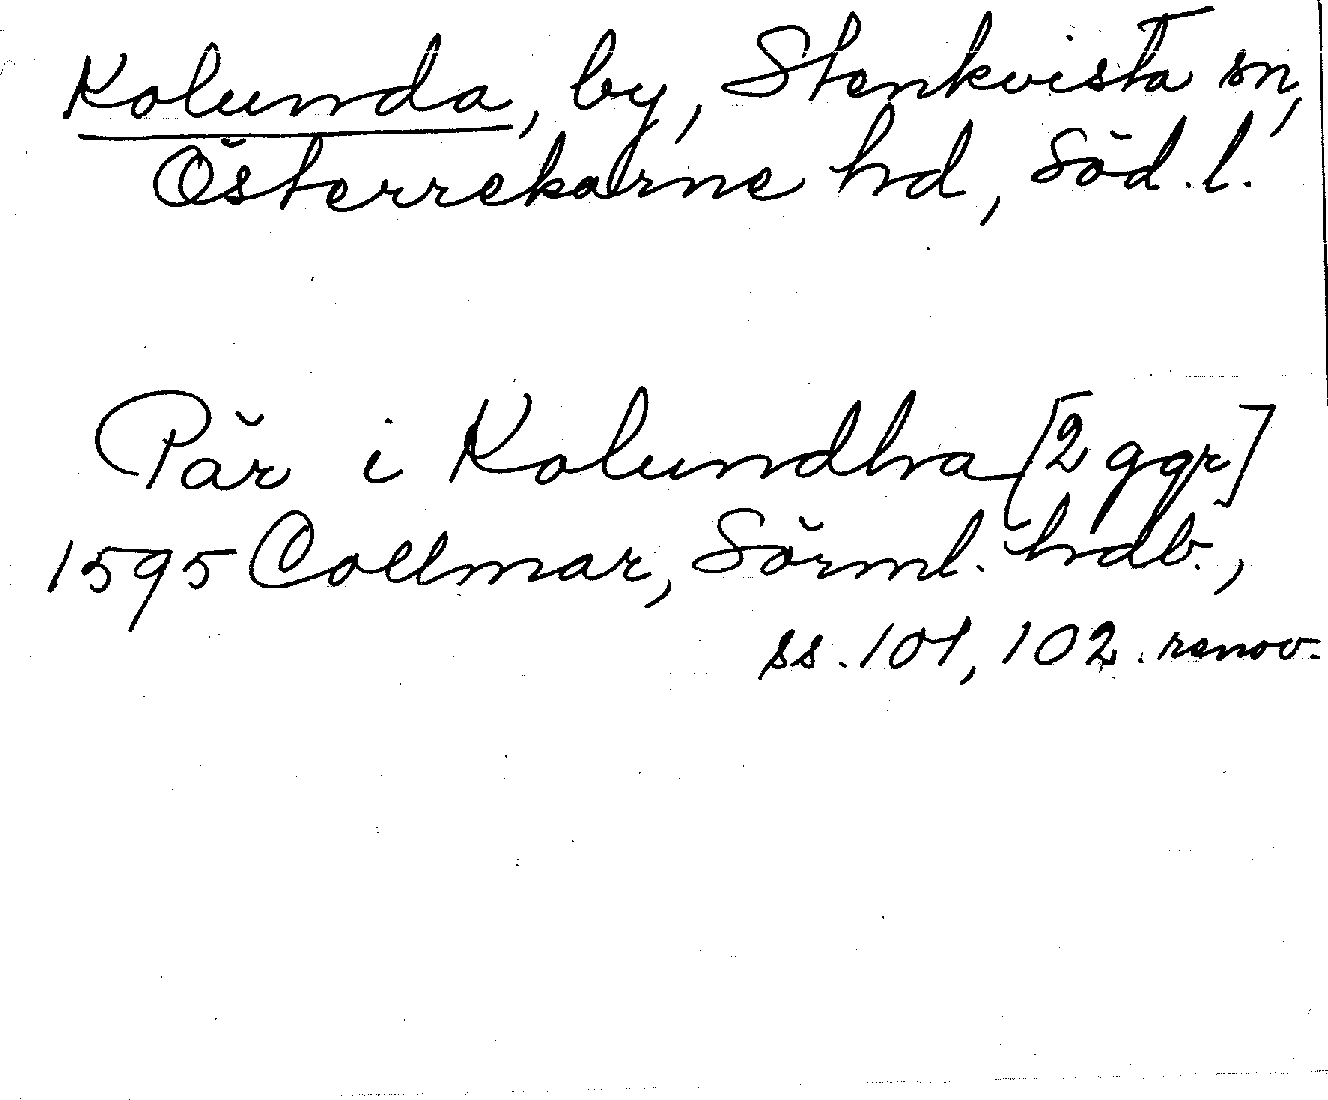 Kolunda, by, Stenkvista sn,
Österrekarne hd, Söd. l.
Pär i Kolundha [2 ggr]
1595 Collmar, Sörml. hdb.,
ss. 101, 102. renov.